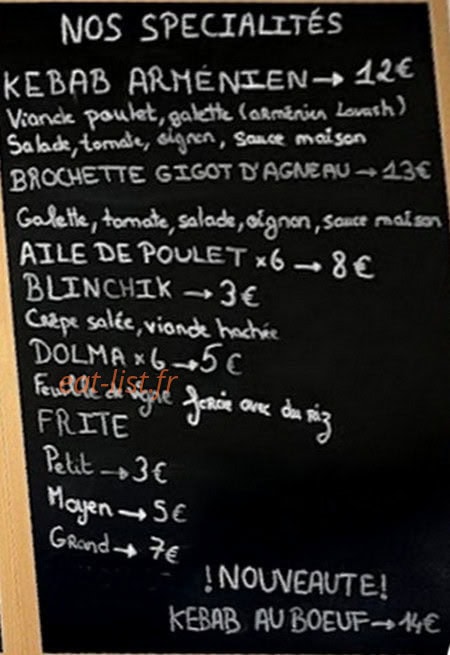 NOS SPECIALITÉS
KEBAB ARMÉNIEN → 12€
Viande poulet, galette (arménien Lavash)
Salade, tomate, oignon, sauce maison
BROCHETTE GIGOT D'AGNEAU → 13€
Galette, tomate, salade, oignon, sauce maison
AILE DE POULET x6 → 8€
BLINCHIK → 3€
Crêpe salée, viande hachée
DOLMA x6 → 5€
eat-list.fr
Feuille de vigne farcie avec du riz
FRITE
Petit → 3€
Moyen → 5€
Grand → 7€
! NOUVEAUTE!
KEBAB AU BOEUF → 14€